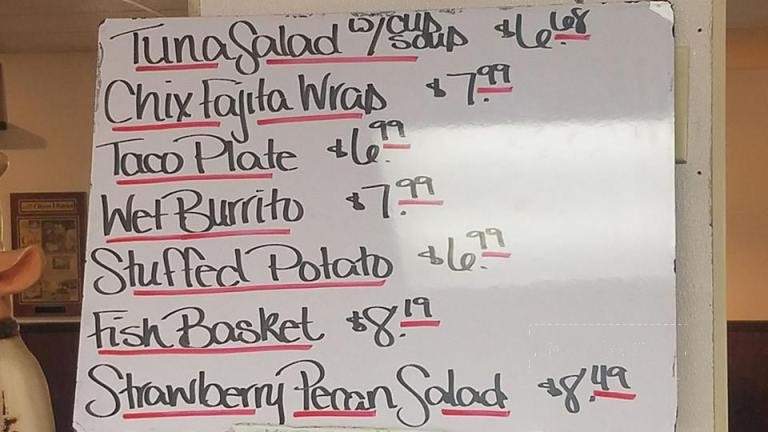 Tuna Salad w/cup soup $6.68
Chix Fajita Wrap $7.99
Taco Plate $6.99
Wet Burrito $7.99
Stuffed Potato $6.99
Fish Basket $8.19
Strawberry Pecan Salad $8.49